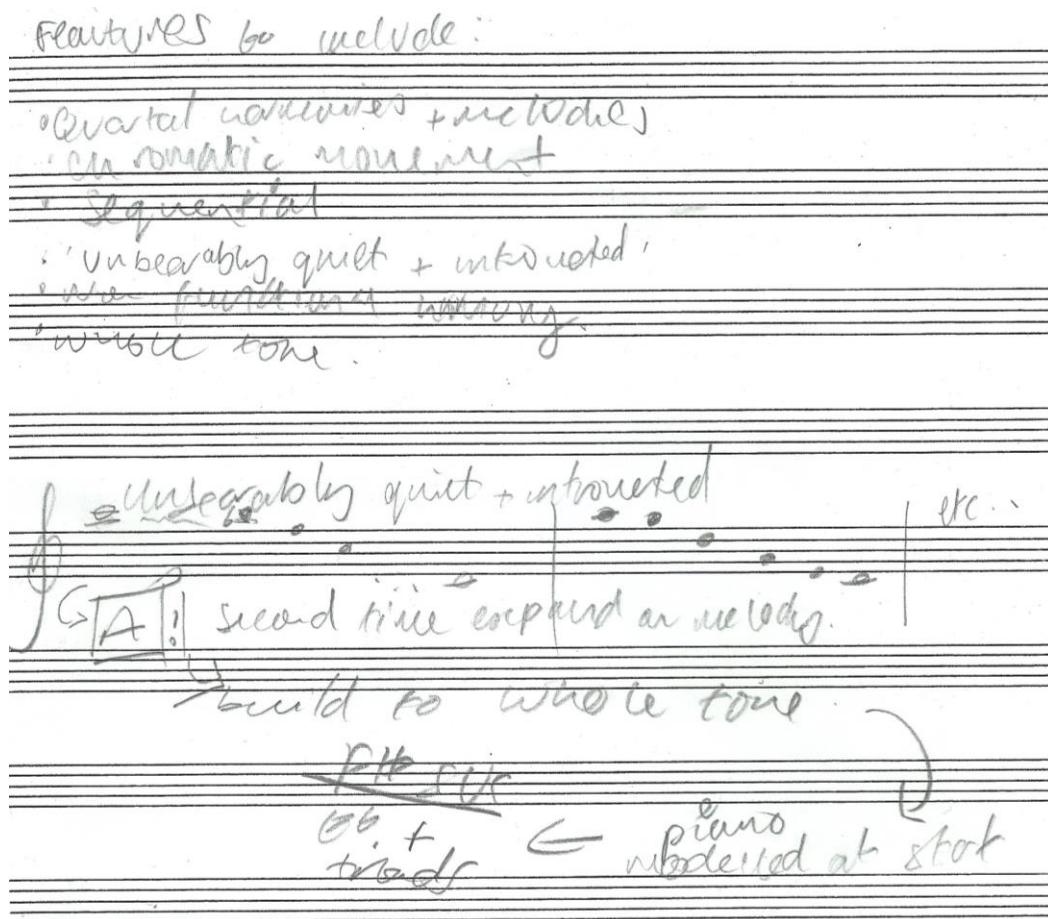 Features to include:
• Quartal harmonies + melodies
• Chromatic movement
• Sequential
• 'unbearably quiet + introverted'
• Non functional harmony
• whole tone.
Unbearably quiet + introverted
etc..
A ! Second time expand on melody.
build to whole tone
piano
+
triads
modelled at start